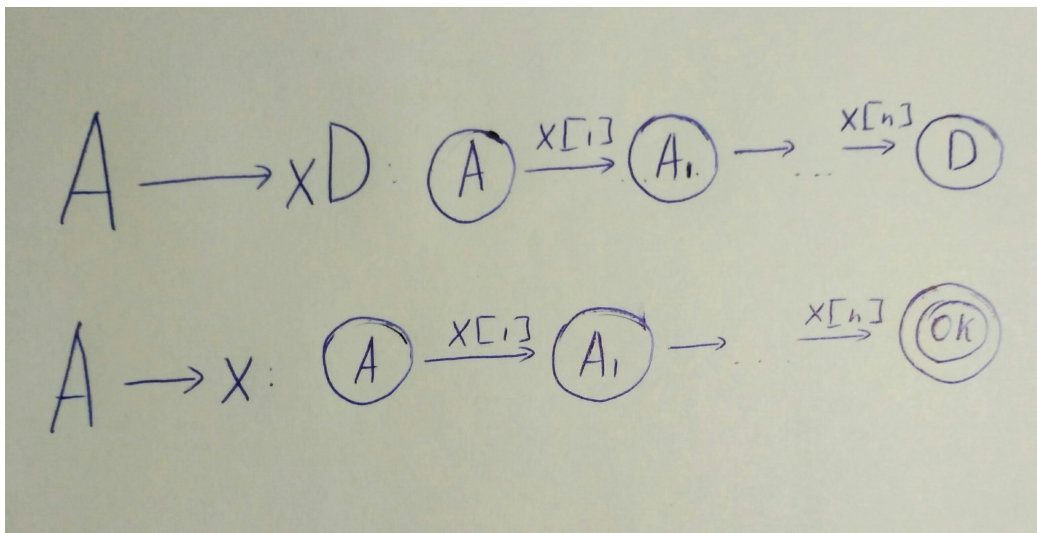 A → xD: A X[1] → A₁ → ... X[n] → D
A → X: A X[1] → A₁ → .... X[n] → OK